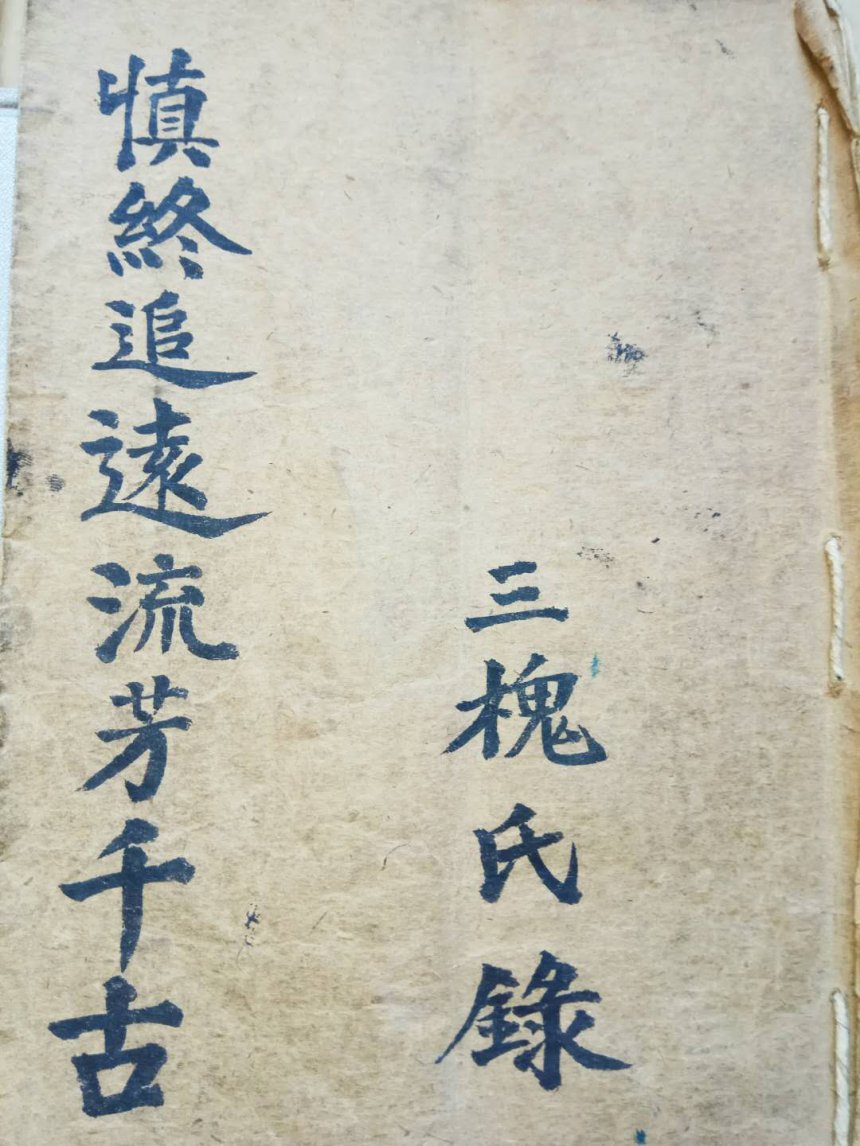 三槐氏錄
慎終追遠流芳千古